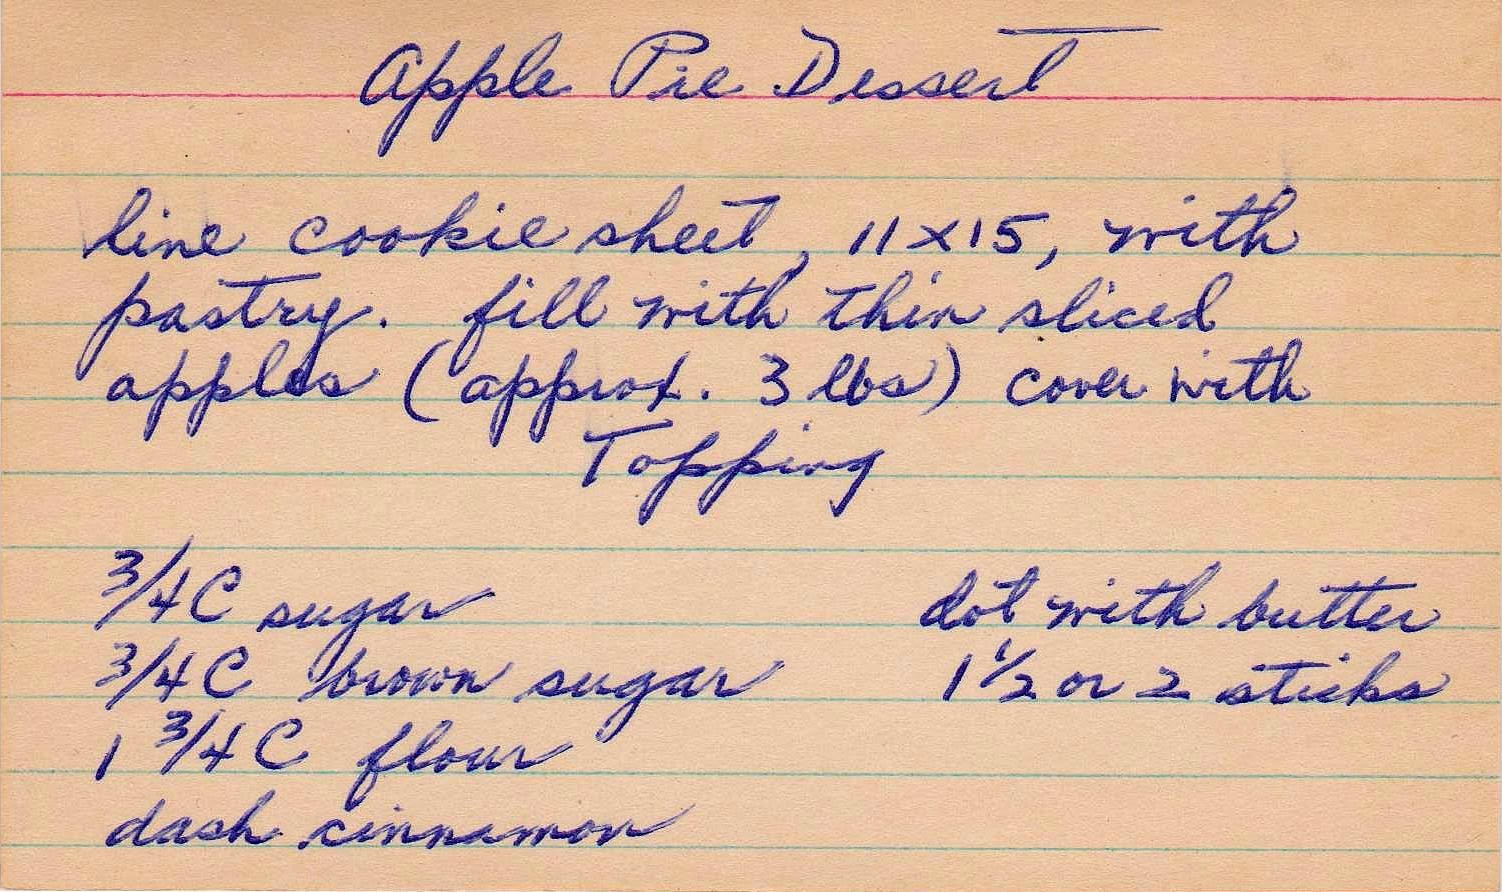 Apple Pie Dessert
line cookie sheet, 11x15, with
pastry. fill with thin sliced
apples (approx. 3 lbs) cover with
Topping
3/4 C sugar
3/4 C brown sugar
1 3/4 C flour
dash cinnamon
dot with butter
1 1/2 or 2 sticks